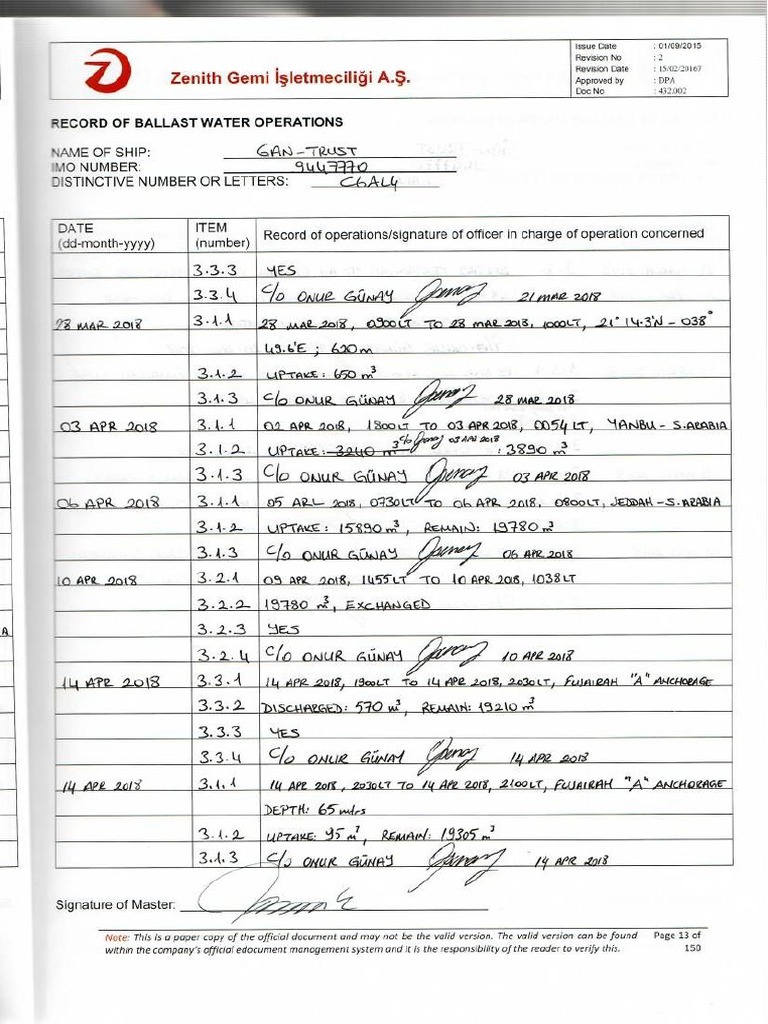 Zenith Gemi İşletmeciliği A.Ş.
Issue Date : 01/09/2015
Revision No : 2
Revision Date : 15/02/20167
Approved by : DPA
Doc No : 432.002
RECORD OF BALLAST WATER OPERATIONS
NAME OF SHIP: GAN-TRUST
IMO NUMBER: 9447770
DISTINCTIVE NUMBER OR LETTERS: C6AL4
DATE (dd-month-yyyy) ITEM (number) Record of operations/signature of officer in charge of operation concerned
3.3.3 YES
3.3.4 C/O ONUR GÜNAY 21 MAR 2018
28 MAR 2018 3.1.1 28 MAR 2018, 0900LT TO 28 MAR 2018, 1000LT, 21° 14.3'N - 038°
49.6'E ; 620m
3.1.2 UPTAKE: 650 m³
3.1.3 C/O ONUR GÜNAY 28 MAR 2018
03 APR 2018 3.1.1 02 APR 2018, 1800LT TO 03 APR 2018, 0054 LT, YANBU - S.ARABIA
3.1.2 UPTAKE: 3240 m³ C/O 03 APR 2018 : 3890 m³
3.1.3 C/O ONUR GÜNAY 03 APR 2018
06 APR 2018 3.1.1 05 ARL 2018, 0730LT TO 06 APR 2018, 0800LT, JEDDAH - S.ARABIA
3.1.2 UPTAKE: 15890 m³, REMAIN: 19780 m³
3.1.3 C/O ONUR GÜNAY 06 APR 2018
10 APR 2018 3.2.1 09 APR 2018, 1455LT TO 10 APR 2018, 1038LT
3.2.2 19780 m³, EXCHANGED
3.2.3 YES
3.2.4 C/O ONUR GÜNAY 10 APR 2018
14 APR 2018 3.3.1 14 APR 2018, 1900LT TO 14 APR 2018, 2030LT, FUJAIRAH "A" ANCHORAGE
3.3.2 DISCHARGED: 570 m³, REMAIN: 19210 m³
3.3.3 YES
3.3.4 C/O ONUR GÜNAY 14 APR 2018
14 APR 2018 3.1.1 14 APR 2018, 2030LT TO 14 APR 2018, 2100LT, FUJAIRAH "A" ANCHORAGE
DEPTH: 65 mtrs
3.1.2 UPTAKE: 95 m³, REMAIN: 19305 m³
3.1.3 C/O ONUR GÜNAY 14 APR 2018
Signature of Master:
Note: This is a paper copy of the official document and may not be the valid version. The valid version can be found
within the company's official edocument management system and it is the responsibility of the reader to verify this.
Page 13 of
150